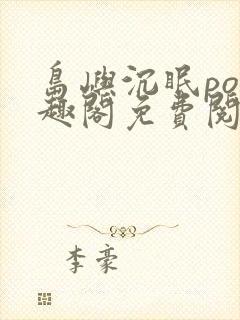 島嶼沉眠po
趣閣免費閱
李豪